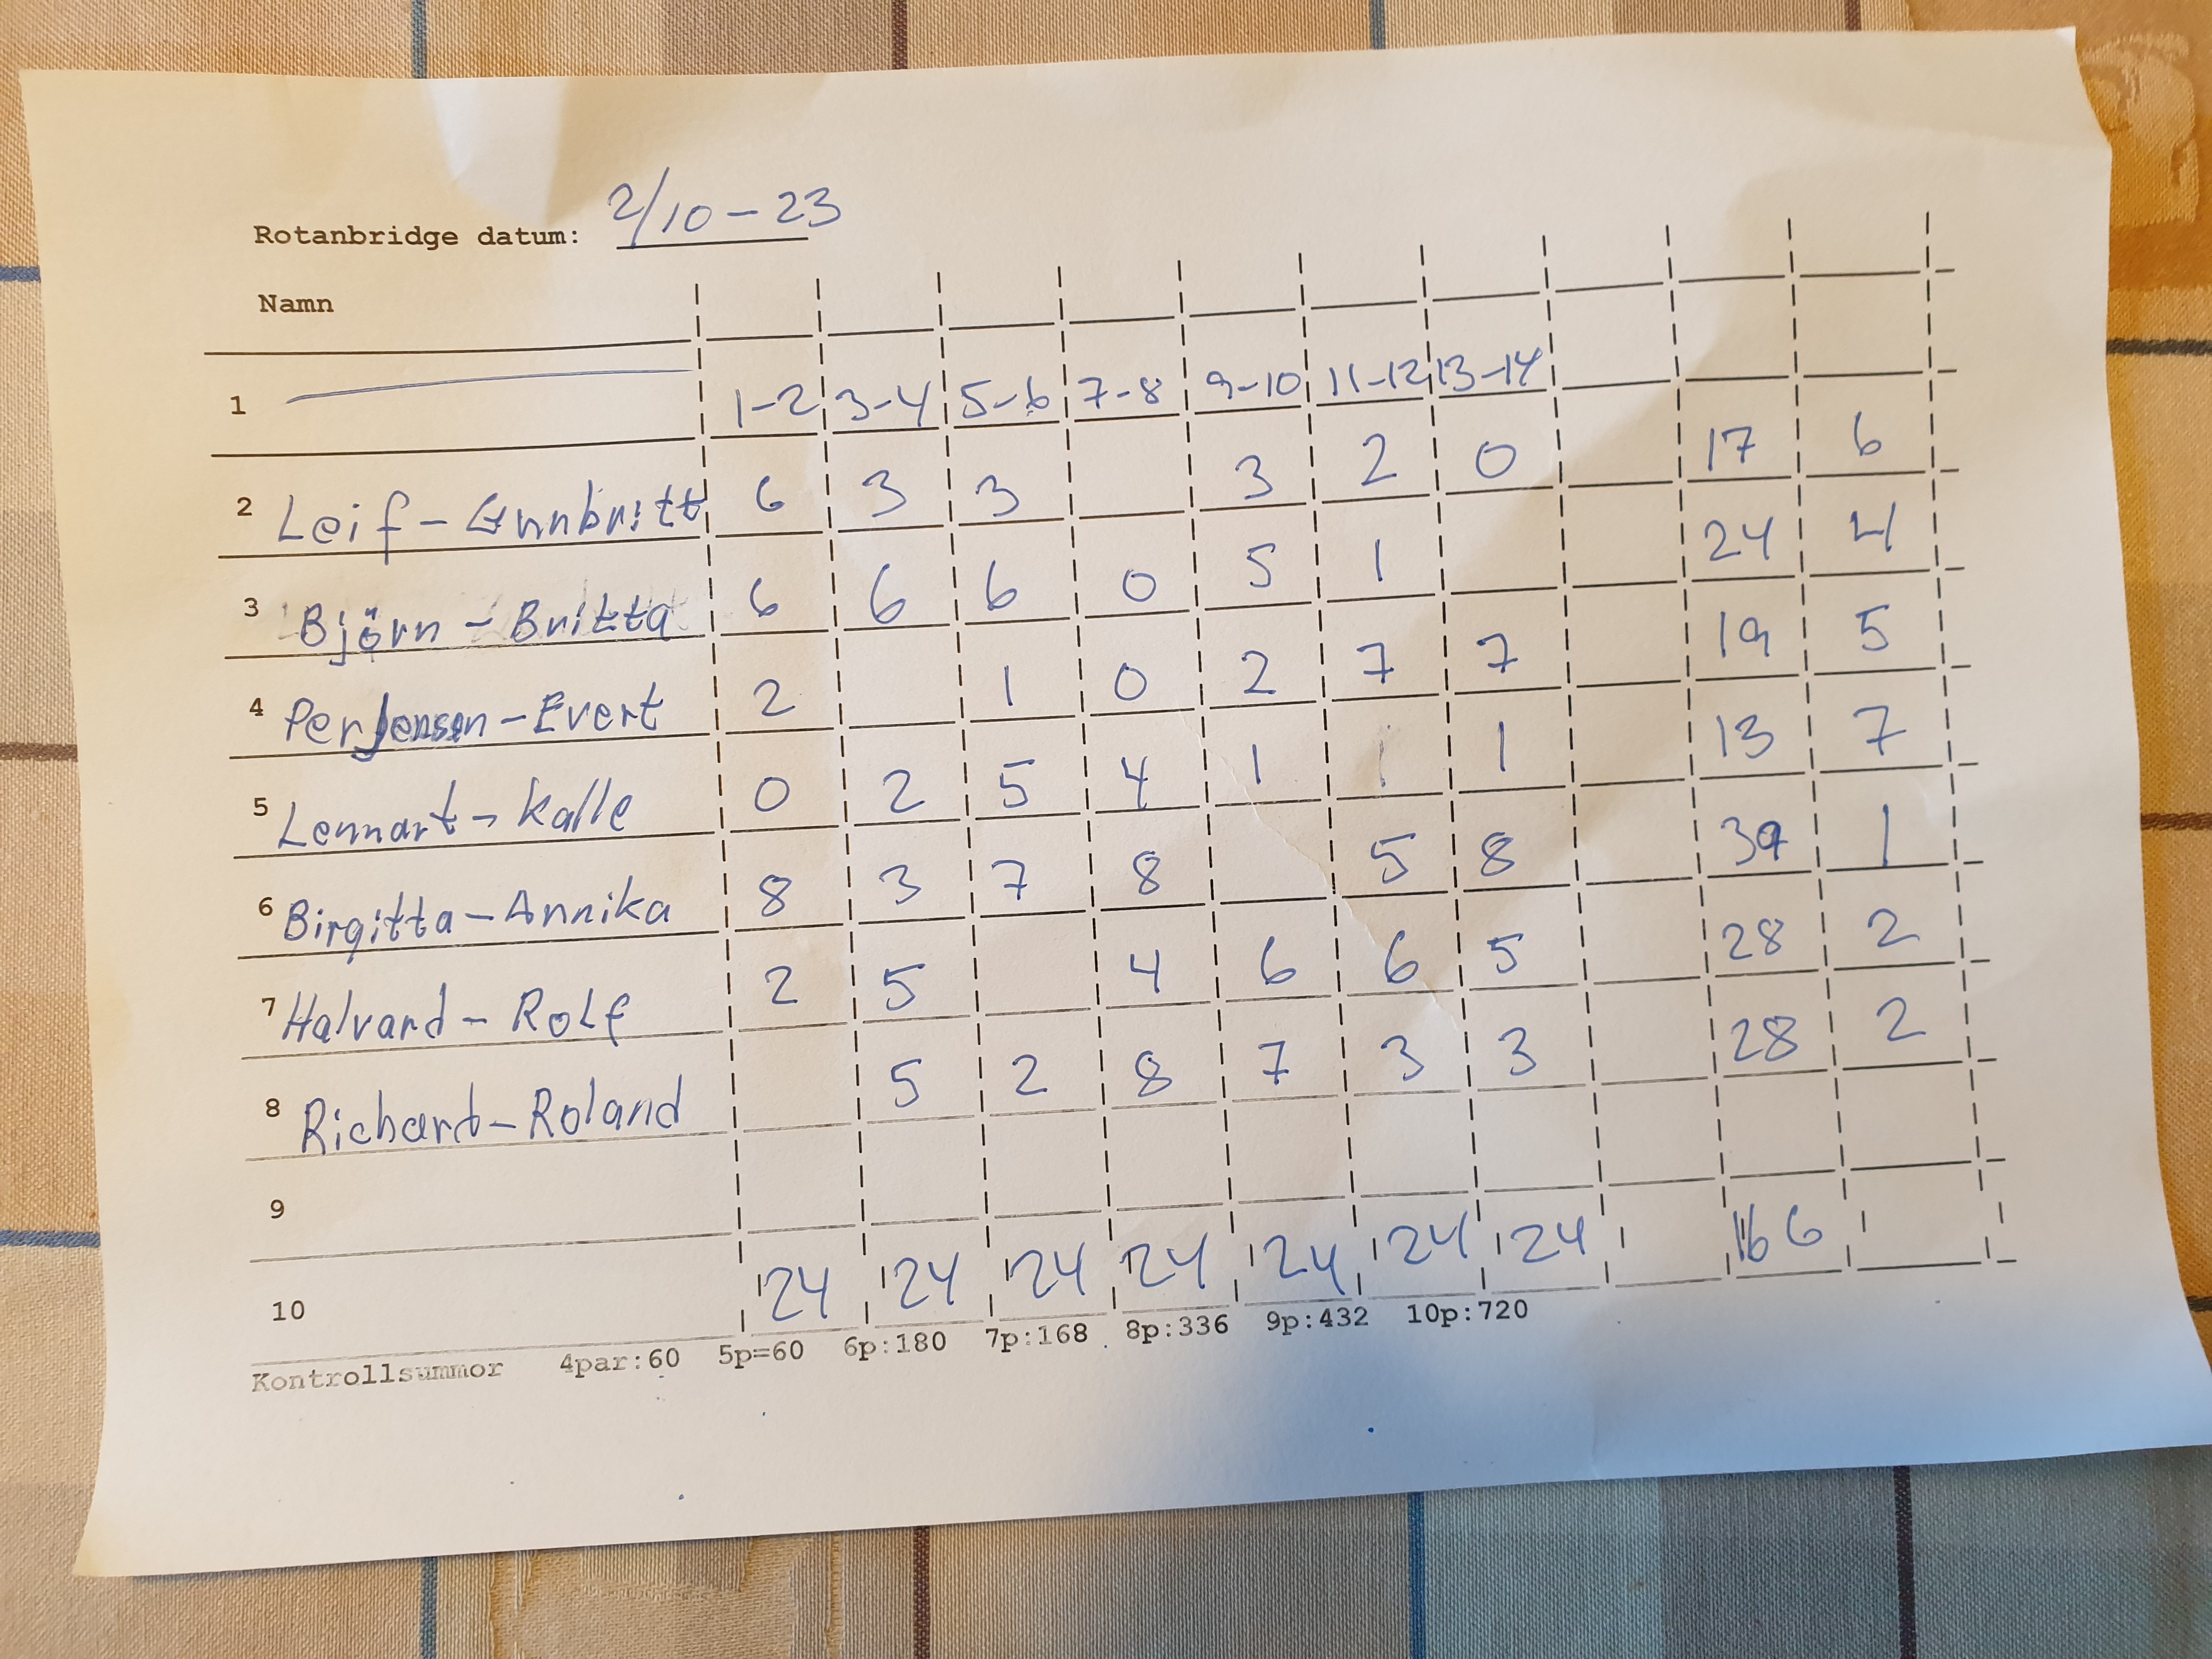 Rotanbridge datum: 2/10-23
Namn
1 1-2 3-4 5-6 7-8 9-10 11-12 13-14
2 Leif-Gunnbritt 6 3 3 3 2 0 17 6
3 Björn-Britta 6 6 6 0 5 1 24 4
4 Per Jensen-Evert 2 1 0 2 7 7 19 5
5 Lennart-Kalle 0 2 5 4 1 1 13 7
6 Birgitta-Annika 8 3 7 8 5 8 39 1
7 Halvard-Rolf 2 5 4 6 6 5 28 2
8 Richard-Roland 5 2 8 7 3 3 28 2
9
10 24 24 24 24 24 24 24 166
Kontrollsummor 4par:60 5p=60 6p:180 7p:168 8p:336 9p:432 10p:720